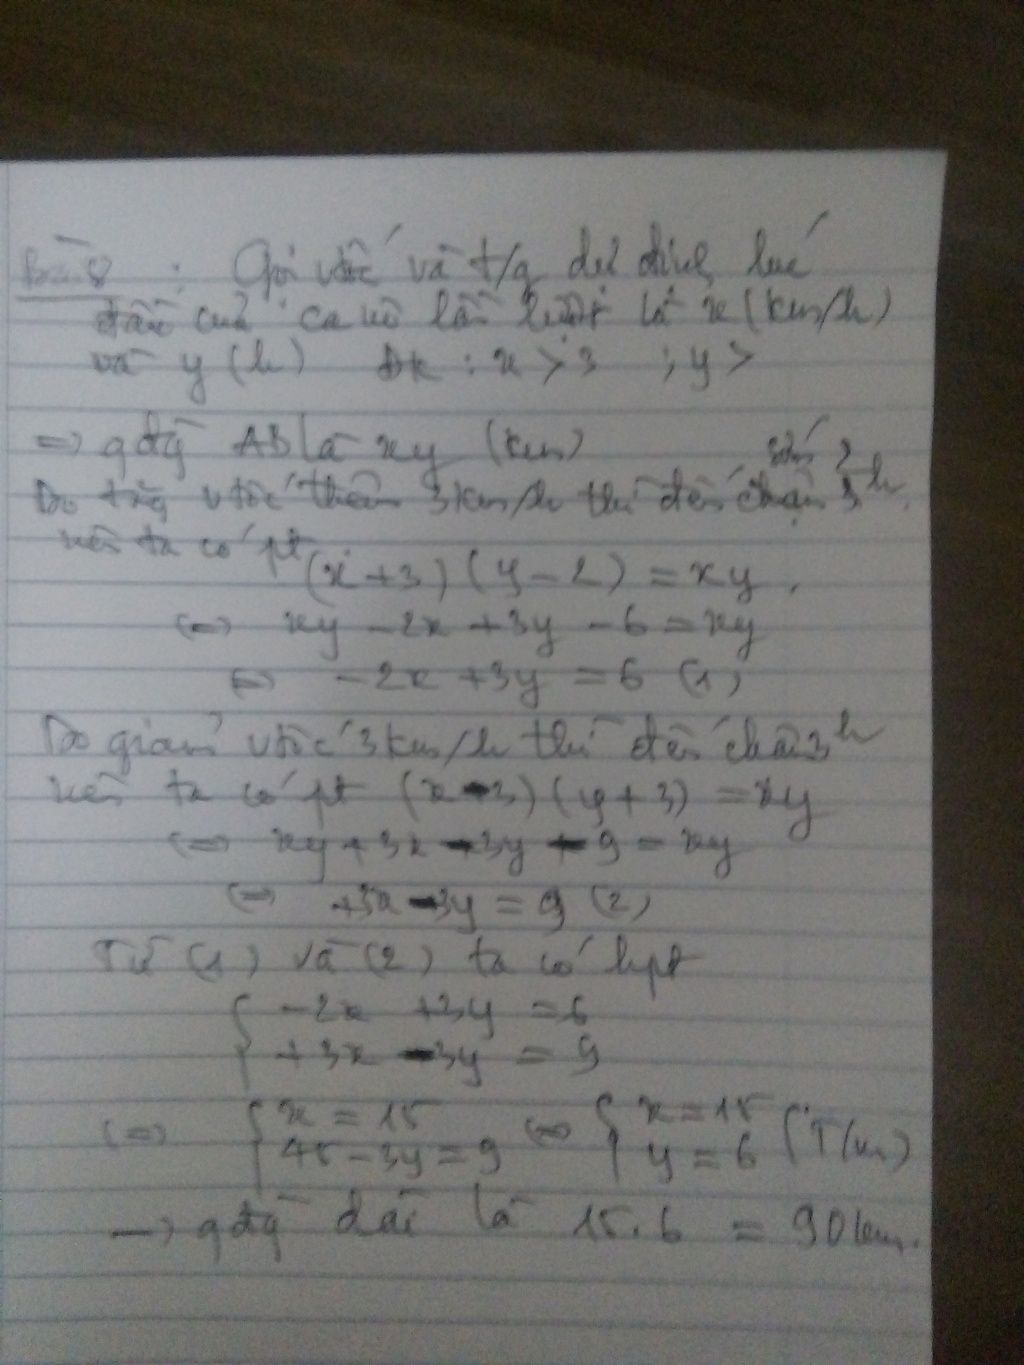 Bài 8 : Gọi vtốc và t/g dự định lúc
đầu của ca nô lần lượt là x (km/h)
và y (h) ĐK : x > 3 ; y >
=> qđg AB là xy (km)
sớm 2
Do tăg vtốc thêm 3km/h thì đến chậm 3h
nên ta có pt
(x + 3) (y - 2) = xy.
<=> xy - 2x + 3y - 6 = xy
<=> -2x + 3y = 6 (1)
Do giảm vtốc 3km/h thì đến chậm 3h
nên ta có pt (x - 3) (y + 3) = xy
<=> xy + 3x - 3y - 9 = xy
<=> +3x - 3y = 9 (2)
Từ (1) và (2) ta có hpt
{ -2x + 3y = 6
+3x - 3y = 9
<=> { x = 15 <=> { x = 15 (T/m)
45 - 3y = 9 y = 6
-> qđg dài là 15.6 = 90km.